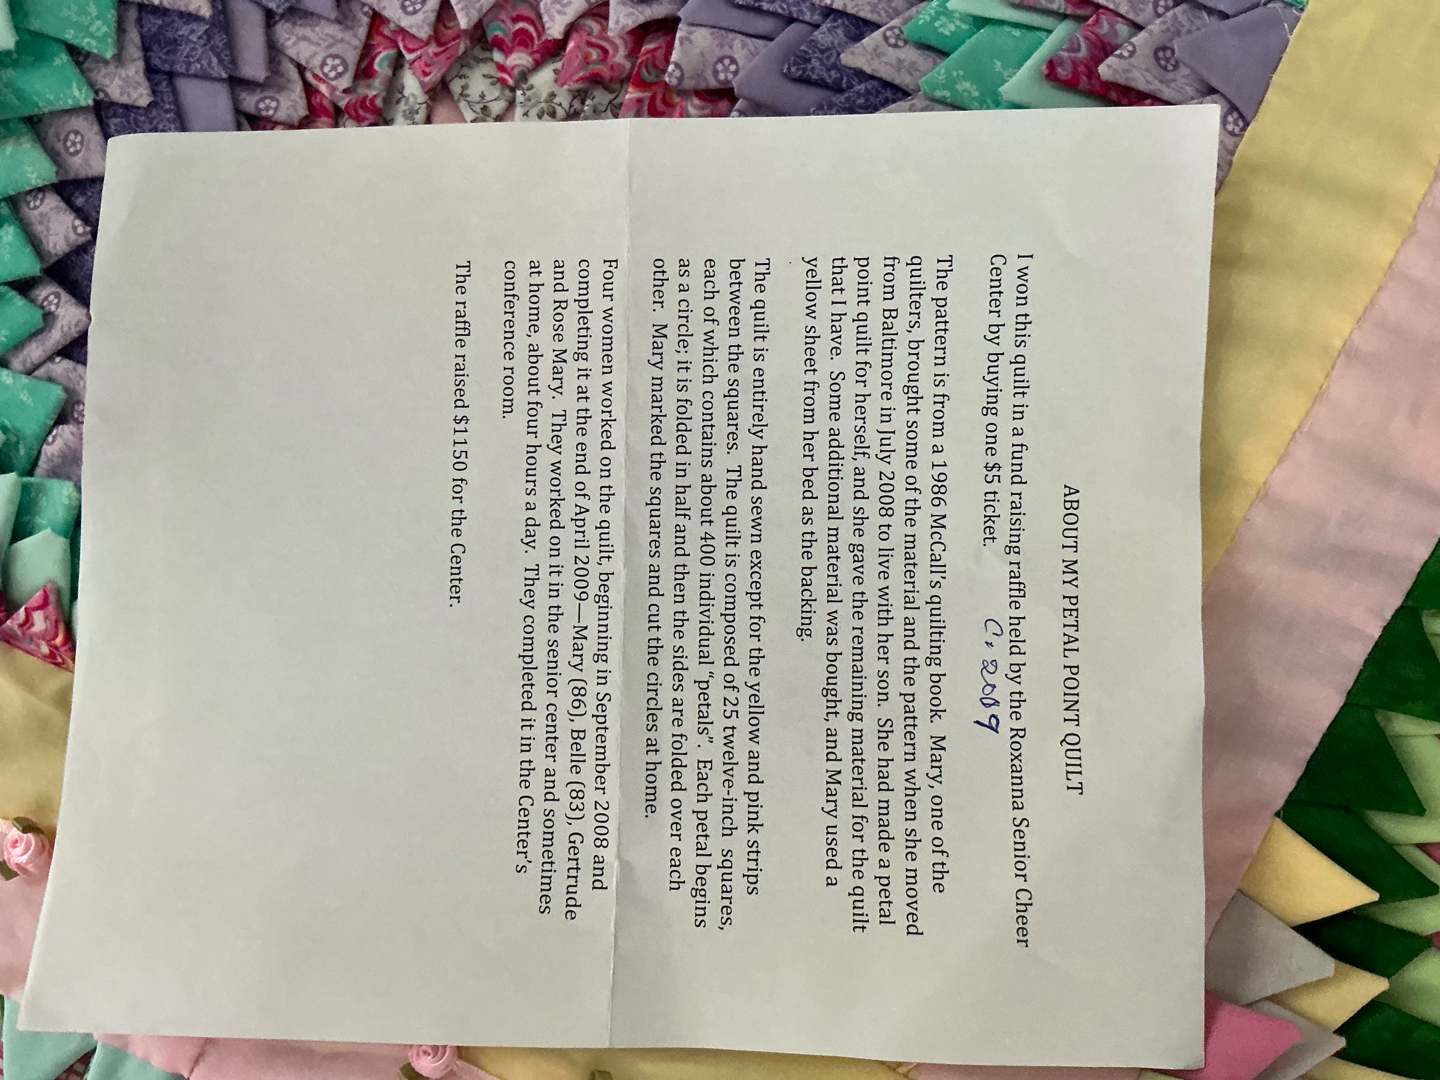 ABOUT MY PETAL POINT QUILT
I won this quilt in a fund raising raffle held by the Roxanna Senior Cheer
Center by buying one $5 ticket. C. 2009
The pattern is from a 1986 McCall's quilting book. Mary, one of the
quilters, brought some of the material and the pattern when she moved
from Baltimore in July 2008 to live with her son. She had made a petal
point quilt for herself, and she gave the remaining material for the quilt
that I have. Some additional material was bought, and Mary used a
yellow sheet from her bed as the backing.
The quilt is entirely hand sewn except for the yellow and pink strips
between the squares. The quilt is composed of 25 twelve-inch squares,
each of which contains about 400 individual "petals". Each petal begins
as a circle; it is folded in half and then the sides are folded over each
other. Mary marked the squares and cut the circles at home.
Four women worked on the quilt, beginning in September 2008 and
completing it at the end of April 2009—Mary (86), Belle (83), Gertrude
and Rose Mary. They worked on it in the senior center and sometimes
at home, about four hours a day. They completed it in the Center's
conference room.
The raffle raised $1150 for the Center.